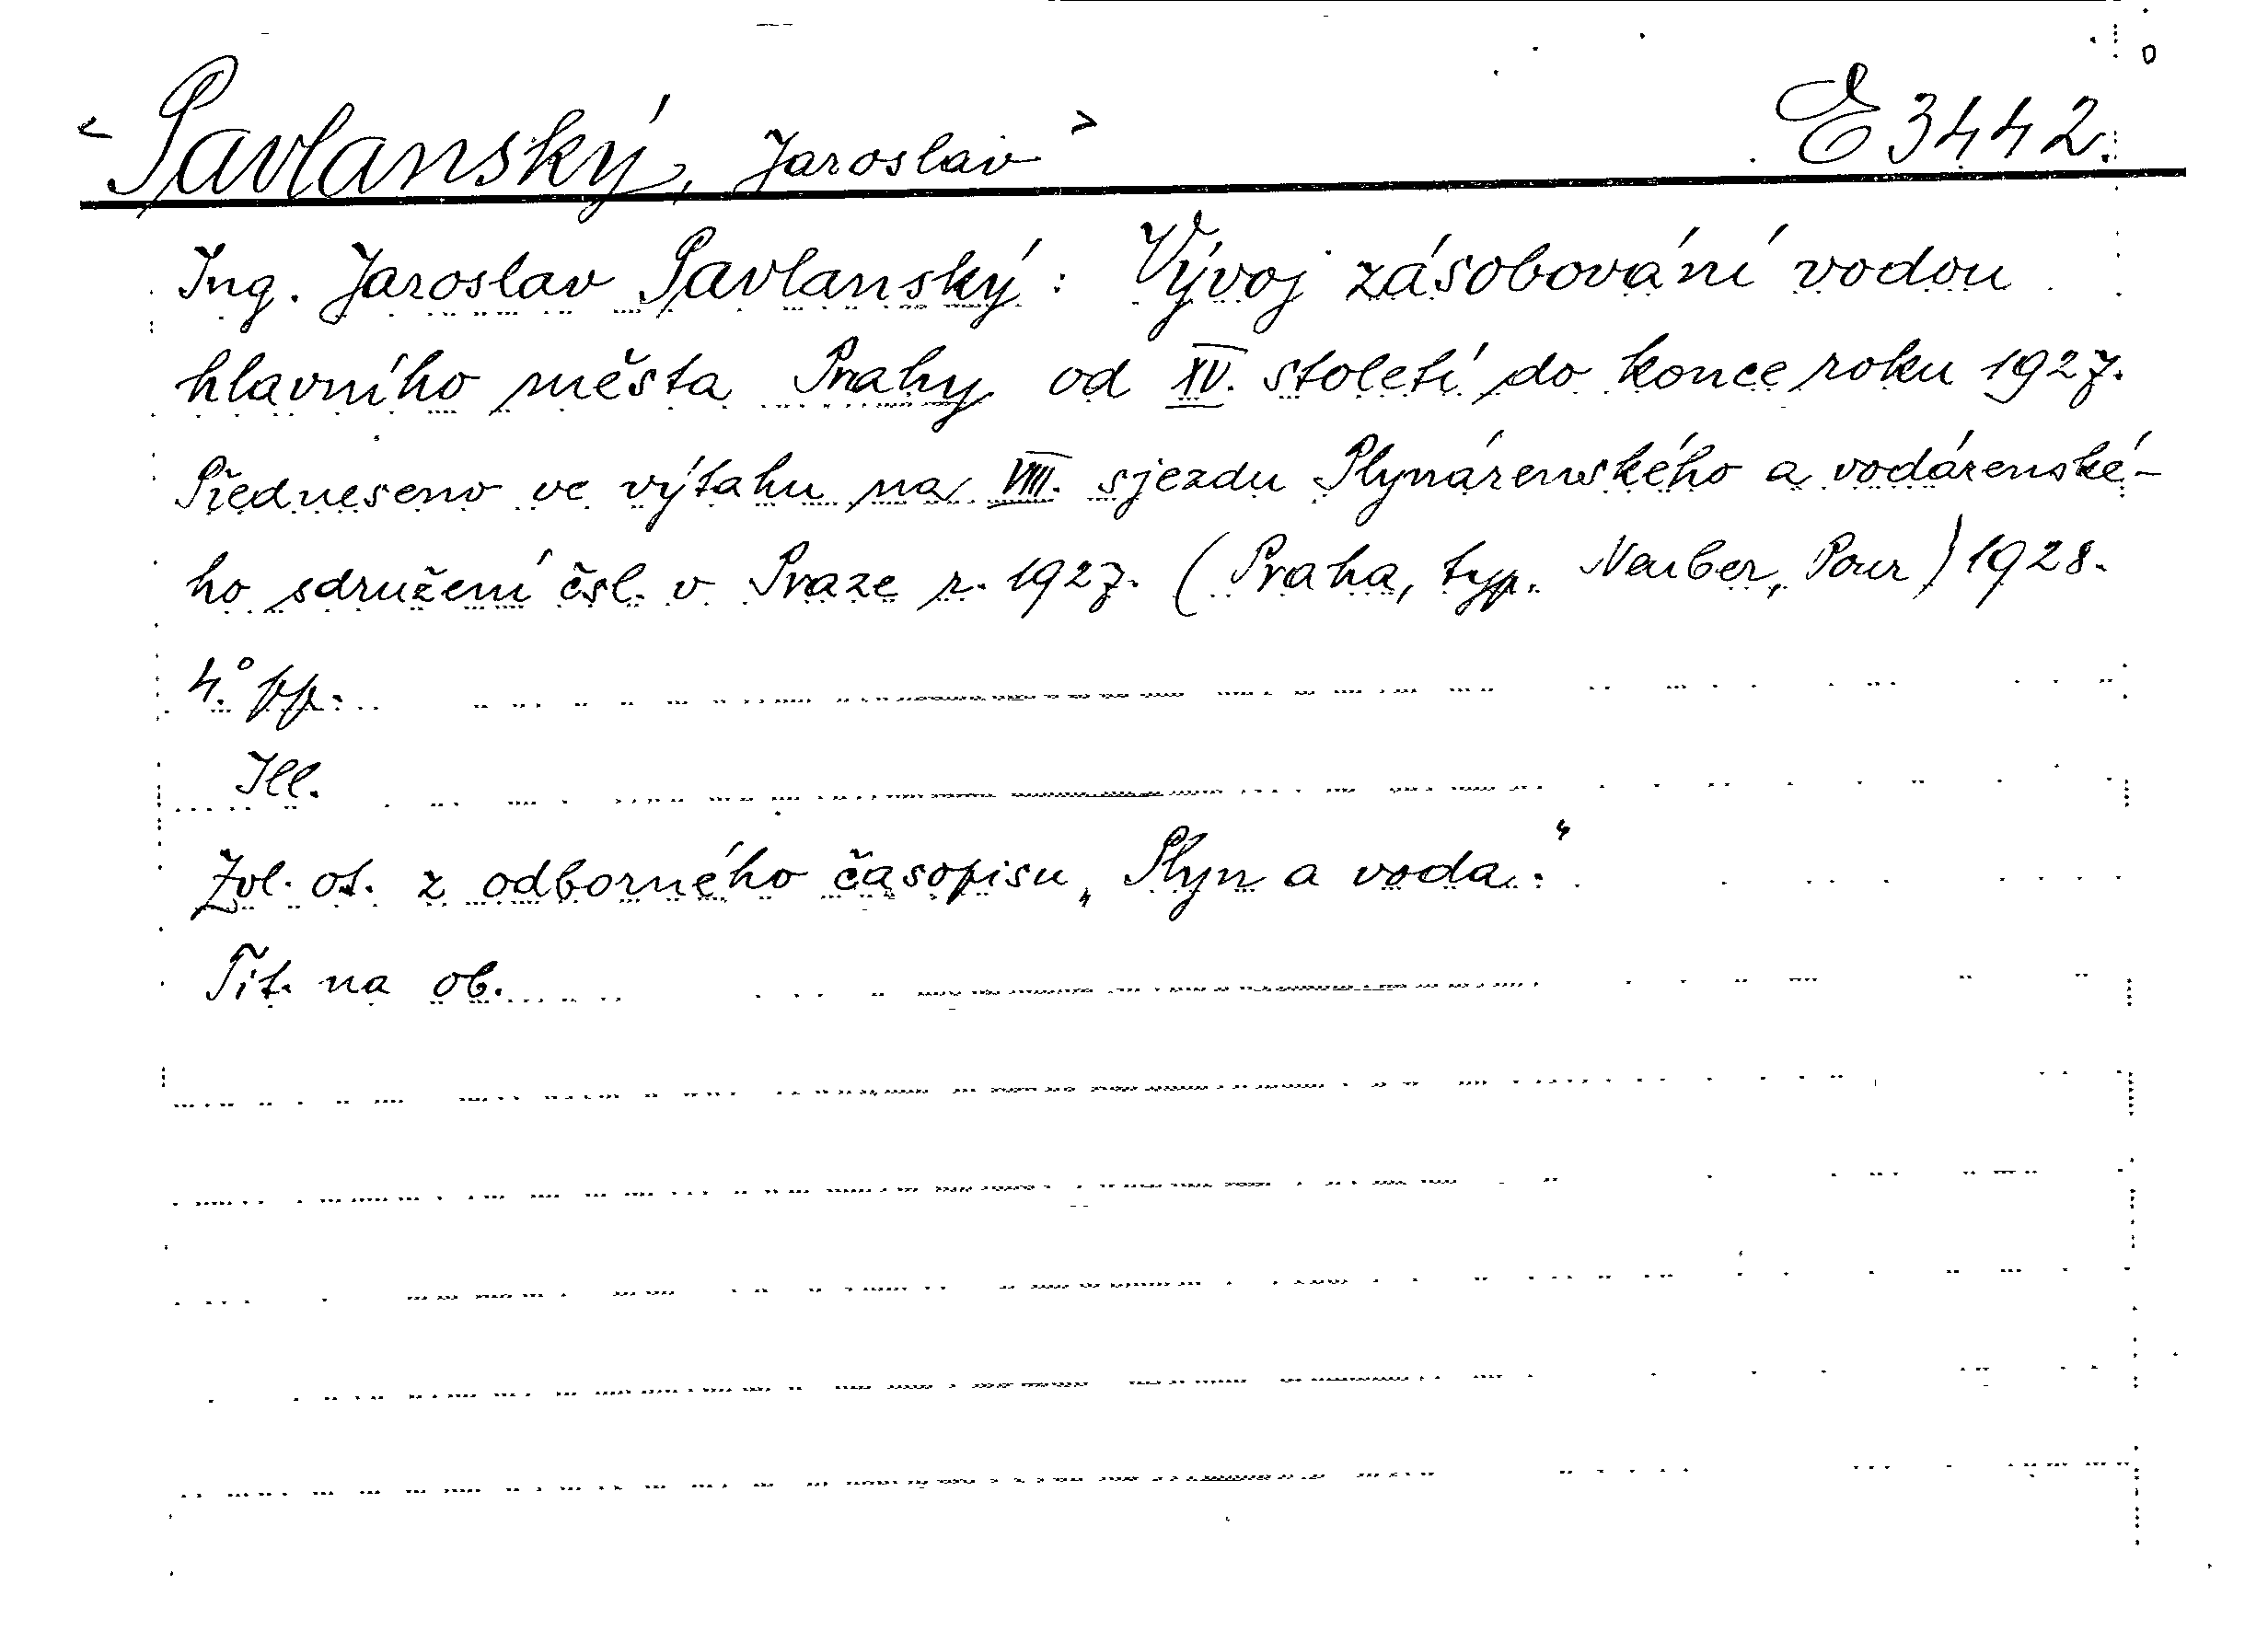 <Pavlanský, Jaroslav> E 3442.
Ing. Jaroslav Pavlanský: Vývoj zásobování vodou
hlavního města Prahy od XV. století do konce roku 1927.
Předneseno ve výtahu na VIII. sjezdu Plynárenského a vodárenské-
ho sdružení čsl. v Praze r. 1927. (Praha, typ. Neuber, Pour) 1928.
4.° pp.
Ill.
Zvl. ot. z odborného časopisu „Plyn a voda."
Tit. na ob.